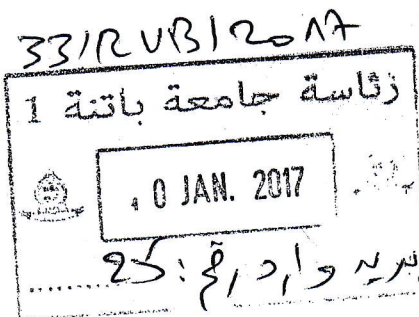 33/RUB1/2017
رئاسة جامعة باتنة 1
0 JAN. 2017
بريد وارد رقم: 25